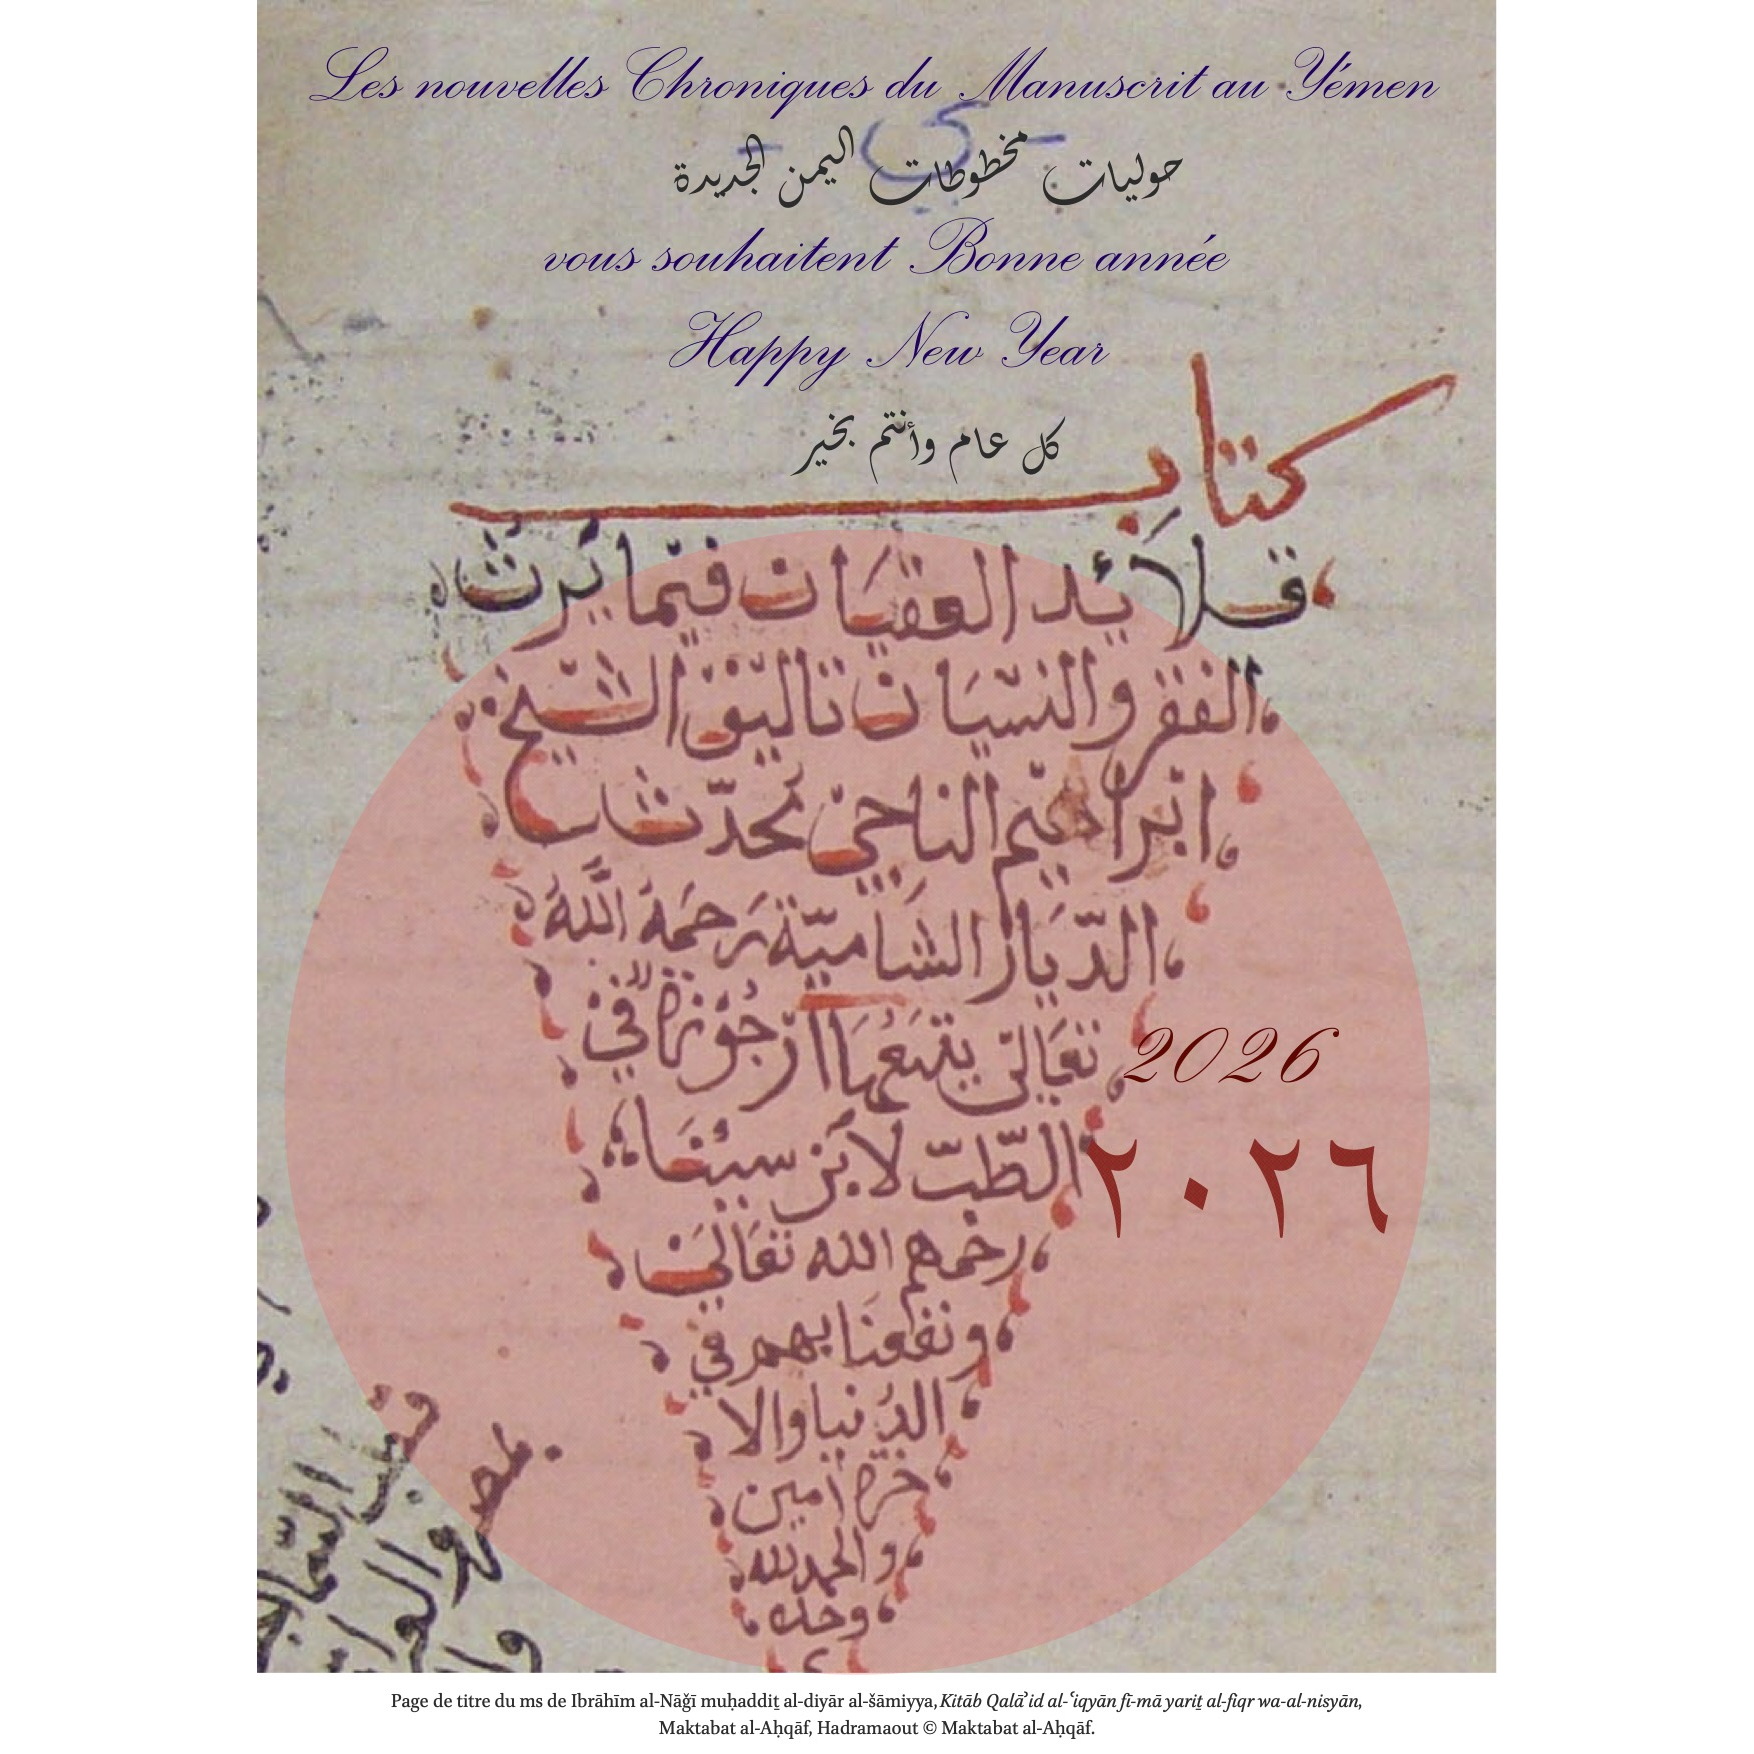 Les nouvelles Chroniques du Manuscrit au Yémen
حوليات مخطوطات اليمن الجديدة
vous souhaitent Bonne année
Happy New Year
كل عام وأنتم بخير
كتاب
قلائد العقيان فيما يرث
الفقر والنسيان تاليف الشيخ
ابراهيم الناجي محدث
الديار الشامية رحمه الله
تعالى يتبعها ارجوزة في
الطب لابن سينا
رحمهم الله تعالى
ونفعنا بهم في
الدنيا والا
خرة امين
والحمد لله
وحده
2026
٢٠٢٦
Page de titre du ms de Ibrāhīm al-Nāǧī muḥaddiṯ al-diyār al-šāmiyya, Kitāb Qalāʾid al-ʿiqyān fī-mā yariṯ al-fiqr wa-al-nisyān,
Maktabat al-Aḥqāf, Hadramaout © Maktabat al-Aḥqāf.